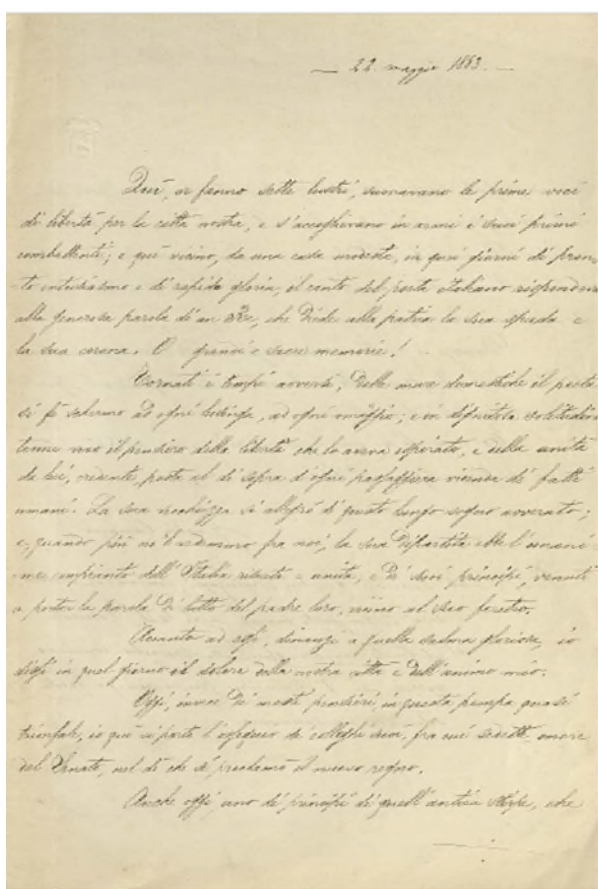 — 22. maggio 1883. —
Quì, or fanno sette lustri, suonavano le prime voci
di libertà per la città nostra, e s'accoglievano in armi i suoi primi
combattenti; e quì vicino, da una casa modesta, in quei giorni di pron-
to entusiasmo e di rapida gloria, il canto del poeta italiano rispondeva
alla generosa parola d'un Re, che diede alla patria la sua spada e
la sua corona. O grandi e sacre memorie!
Tornati i tempi avversi, delle mura domestiche il poeta
si fe' schermo ad ogni lusinga, ad ogni omaggio; e in dignitosa solitudine
tenne vivo il pensiero della libertà che lo aveva ispirato, e della unità
da lui, credente, posta al di sopra d'ogni passaggiera vicenda di fatti
umani. La sua vecchiezza si allegrò di questo lungo sogno avverato;
e, quando più nol vedemmo fra noi, la sua dipartita ebbe l'unani-
me compianto dell'Italia redenta e unita, e di suoi principi, venuti
a portar la parola di lutto del padre loro, vicino al suo feretro.
Accanto ad essi, dinanzi a quella salma gloriosa, io
dissi in quel giorno il dolore della nostra città e dell'animo mio.
Oggi, invece di mesti pensieri, in questa pompa quasi
trionfale, io quì vi porto l'ossequio de' colleghi suoi, fra cui sedette, onore
del Senato, nel dì che si proclamò il nuovo regno.
Anche oggi, uno di principi di quell'antica stirpe, che